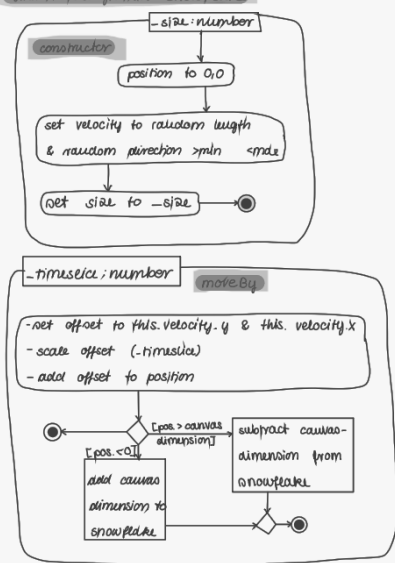 _size: number
constructor
position to 0,0
set velocity to random length
& random direction >min <max
set size to _size
_timeslice: number
moveBy
- set offset to this.velocity.y & this.velocity.x
- scale offset (_timeslice)
- add offset to position
[pos.>canvas
dimension]
[pos.<0]
subtract canvas-
dimension from
snowflake
add canvas
dimension to
snowflake